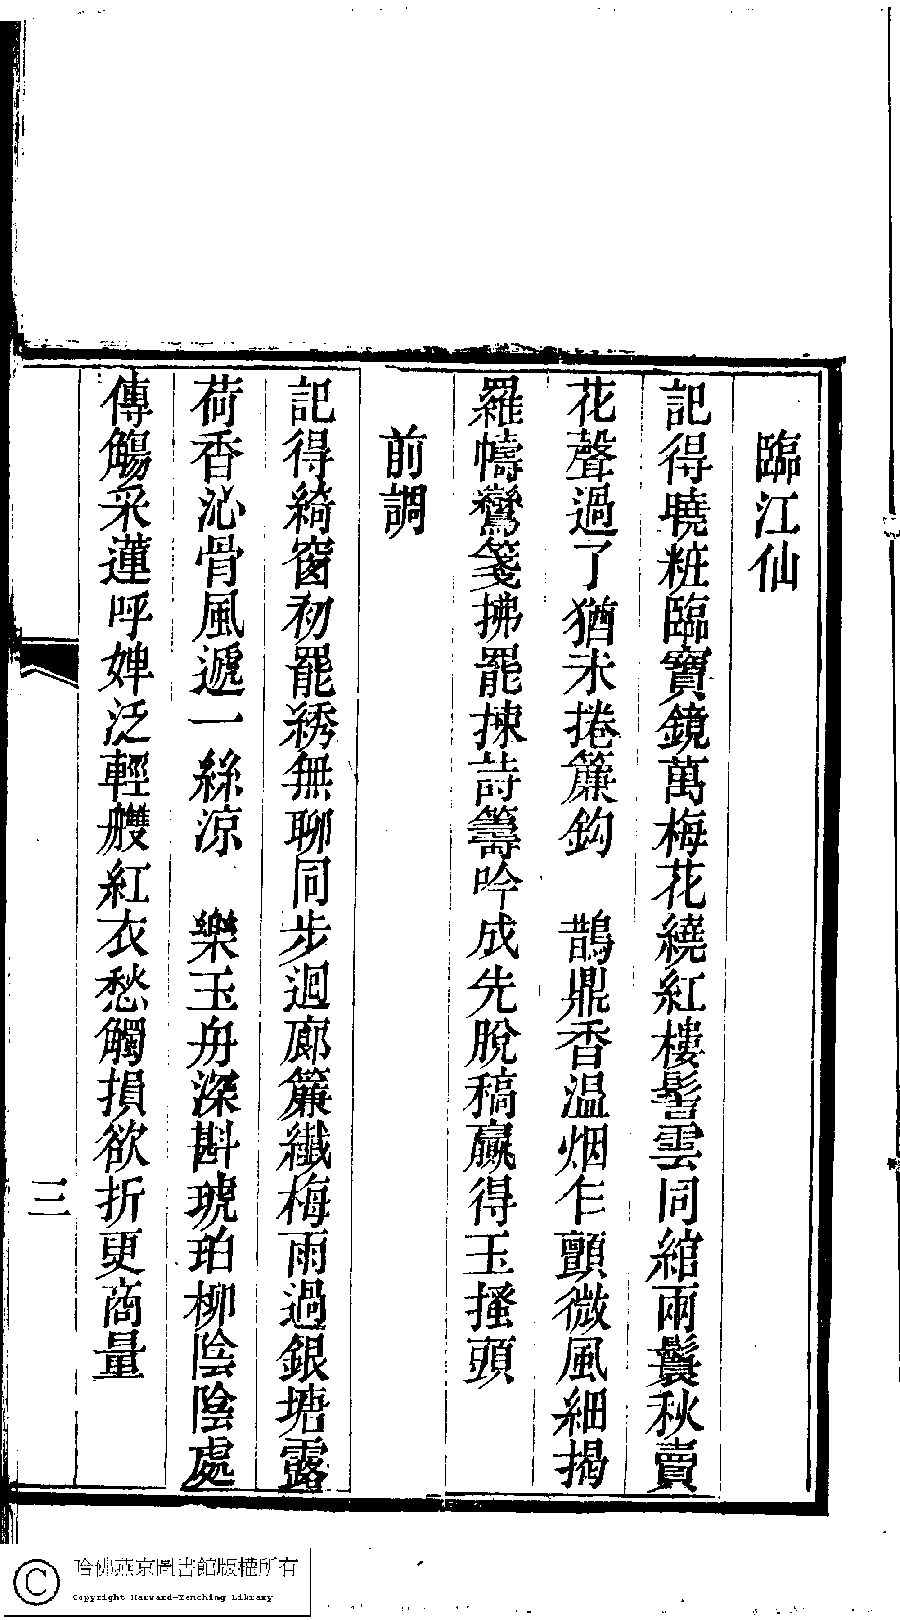 臨江仙
記得曉粧臨寶鏡萬梅花繞紅樓髻雲同綰兩鬟秋賣
花聲過了猶未捲簾鈎　鵲鼎香温烟乍顫微風細揭
羅幬鸞箋拂罷揀詩籌吟成先脫稿贏得玉搔頭
前調
記得綺窗初罷綉無聊同步迴廊簾纖梅雨過銀塘露
荷香沁骨風遞一絲涼　樂玉舟深斟琥珀柳陰陰處
傳觴采蓮呼婢泛輕艭紅衣愁觸損欲折更商量
三
哈佛燕京圖書館版權所有
Copyright Harvard-Yenching Library